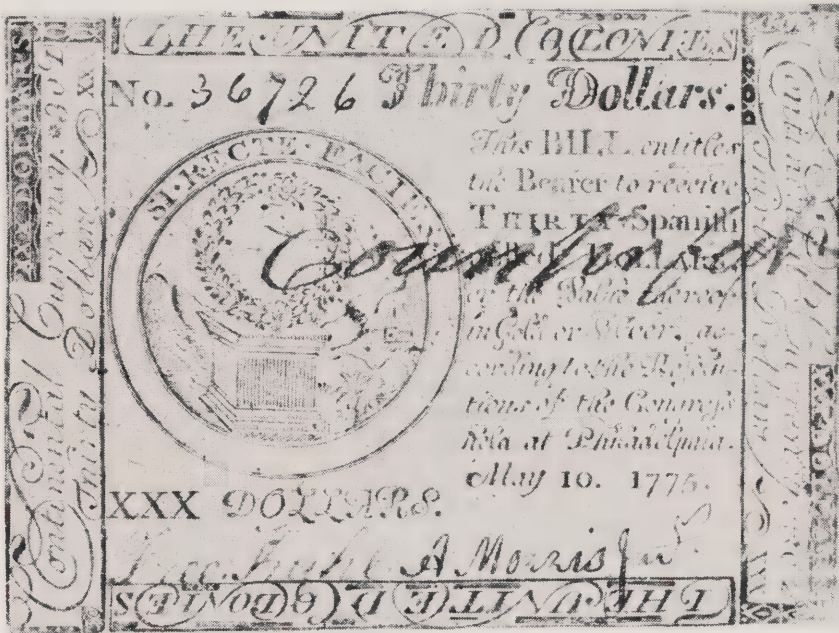 THE UNITED COLONIES
No. 36726 Thirty Dollars.
SI·RECTE·FACIES
This BILL entitles
the Bearer to receive
THIRTY Spanish
DOLLARS,
or the Value thereof
in Gold or Silver, ac-
cording to the Resolu-
tions of the Congress
held at Philadelphia.
May 10. 1775.
XXX DOLLARS.
A Morris Junr
THE UNITED COLONIES
Continental Currency
Thirty Dollars
XXX DOLLARS